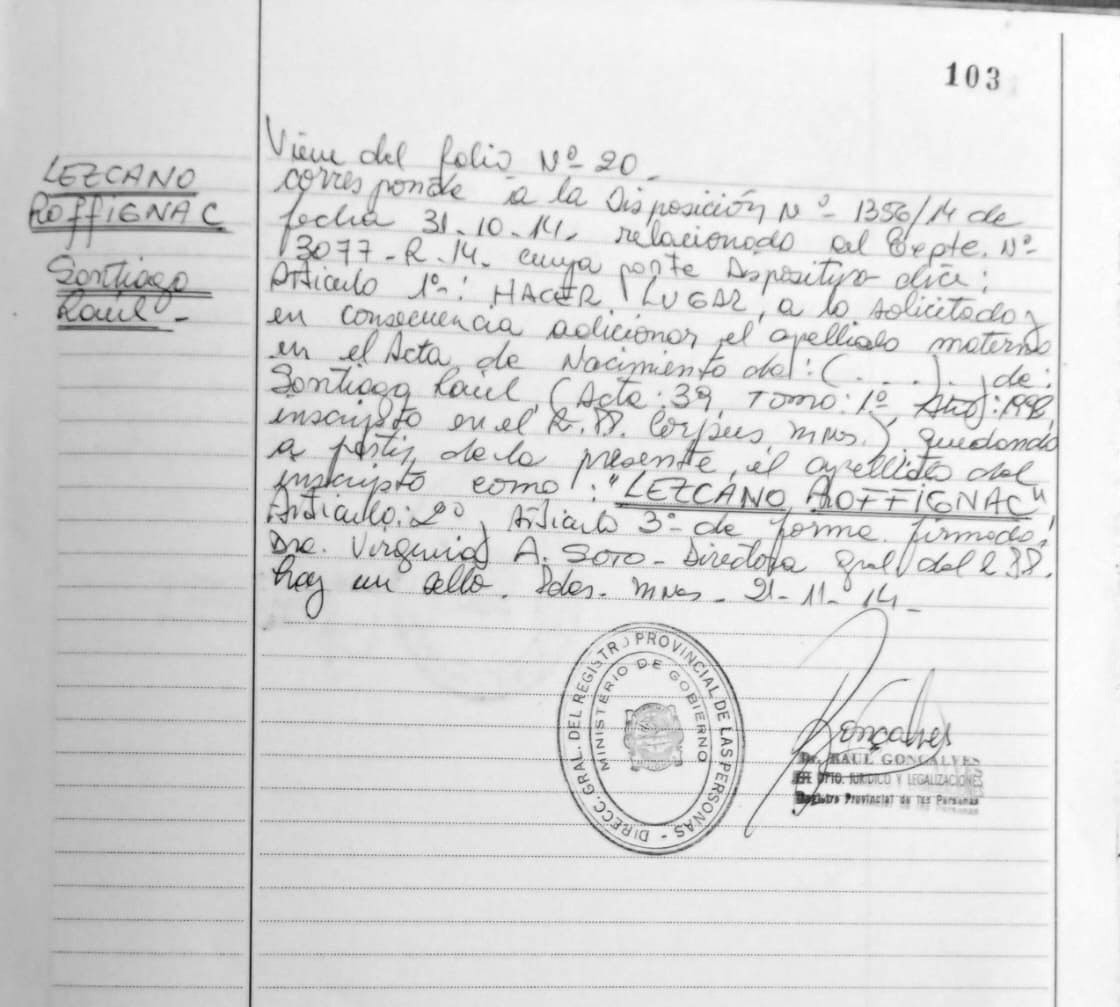 103
LEZCANO
ROFFIGNAC
Santiago
Raúl -
Viene del folio Nº 20 -
corresponde a la Disposición Nº 1356/14 de
fecha 31-10-14, relacionado al Expte. Nº
3077-R-14- cuya parte Dispositiva dice:
Artículo 1º: HACER LUGAR, a lo solicitado y
en consecuencia adicionar el apellido materno
en el Acta de Nacimiento de: (. . . .) de:
Santiago Raúl (Acta: 39, Tomo: 1º, Año: 1998,
inscripto en el R.PP. Corpus Mnes.) quedando
a partir de la presente, el apellido del
inscripto como: "LEZCANO ROFFIGNAC"
Artículo: 2º, Artículo 3º de forma. firmado:
Dra. Virginia A. SOTO - Directora Gral del R.PP.
hay un sello. Pdas. Mnes - 21-11-14 -
DIRECC. GRAL. DEL REGISTRO PROVINCIAL DE LAS PERSONAS -
MINISTERIO DE GOBIERNO
Gonçalves
Dr. RAUL GONÇALVES
JEFE DPTO. JURIDICO Y LEGALIZACIONES
Registro Provincial de las Personas